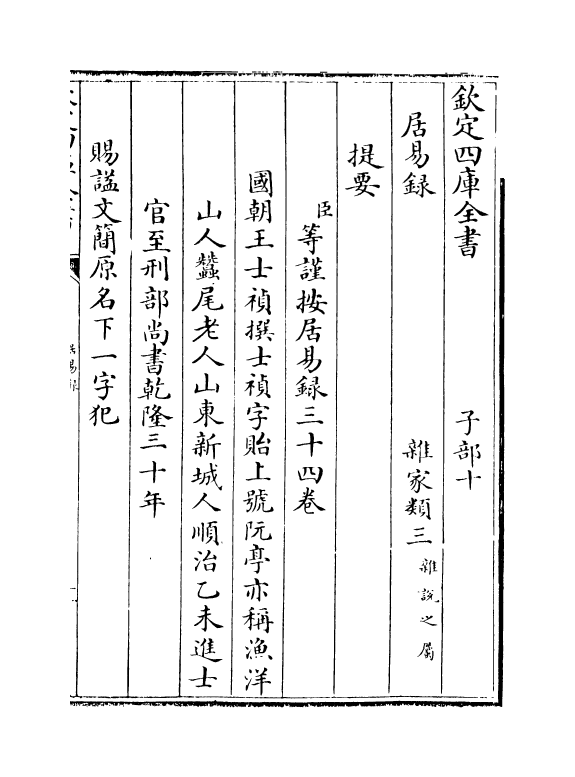 欽定四庫全書　子部十
居易録　雜家類三雜說之屬
提要
臣等謹按居易録三十四卷
國朝王士禎撰士禎字貽上號阮亭亦稱漁洋
山人蠶尾老人山東新城人順治乙未進士
官至刑部尚書乾隆三十年
賜謚文簡原名下一字犯
居易録